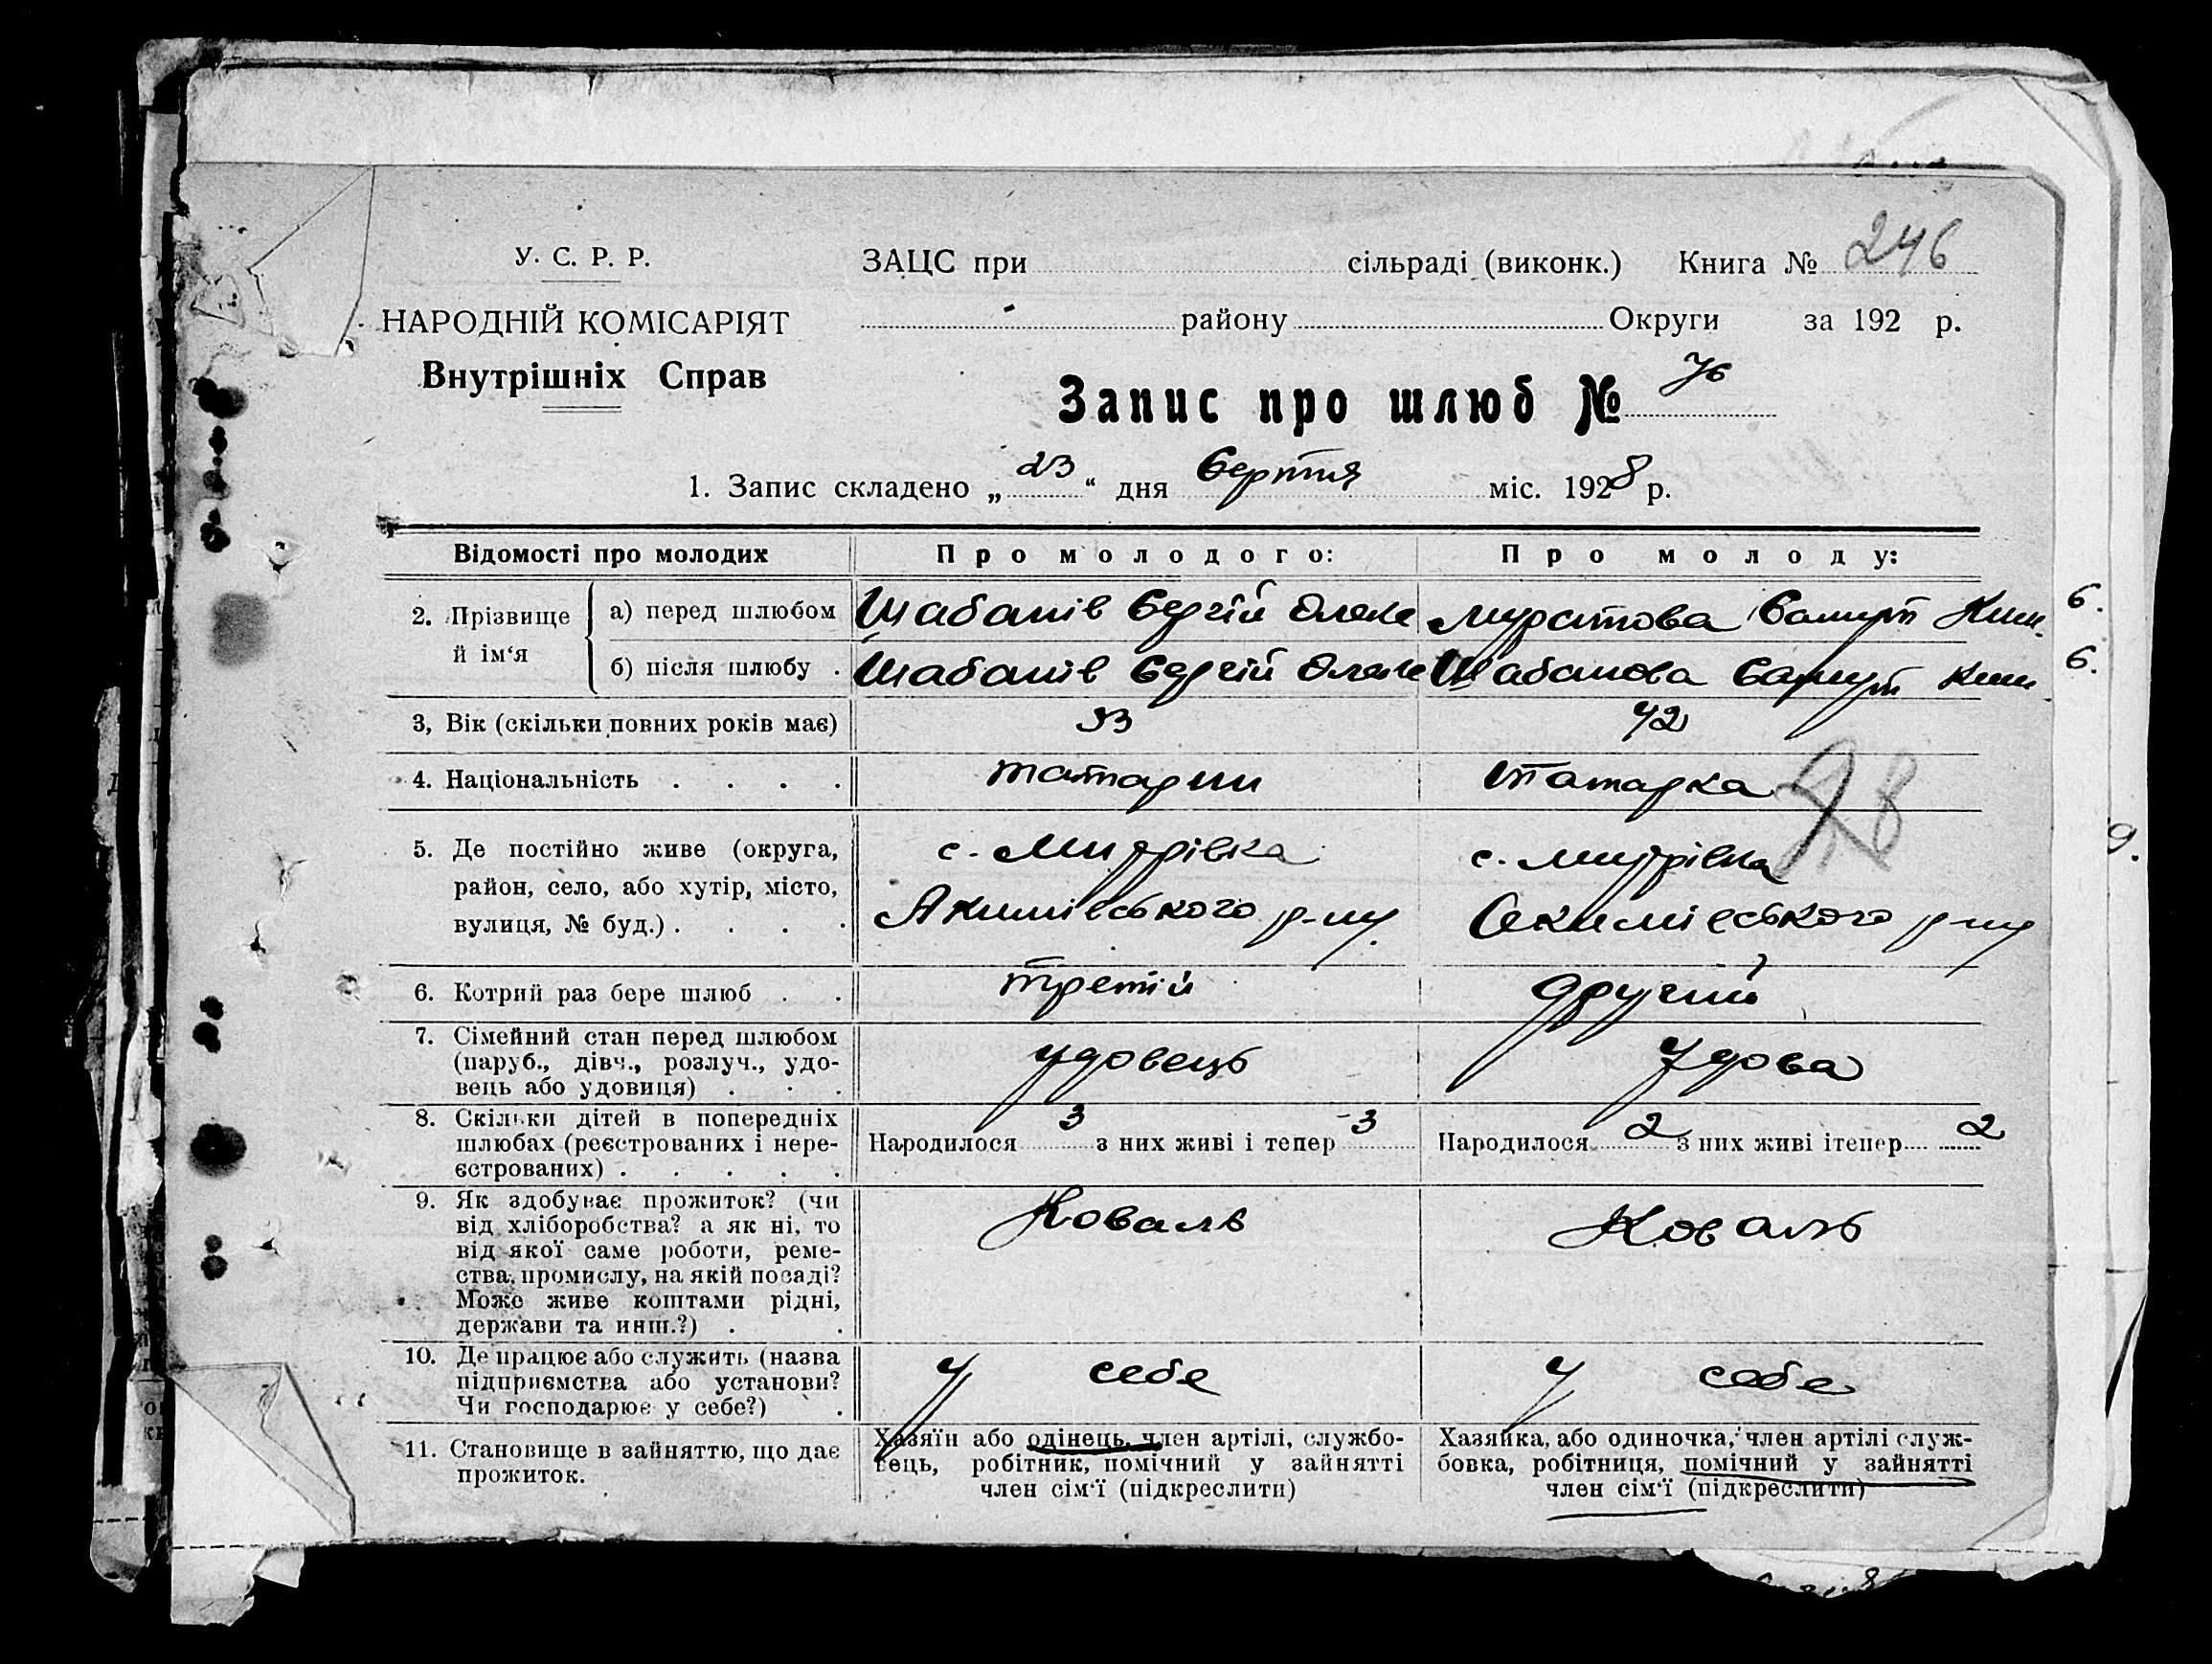 У. С. Р. Р.
НАРОДНІЙ КОМІСАРІЯТ
Внутрішніх Справ
ЗАЦС при сільраді (виконк.) Книга № 246
району Округи за 192 р.
Запис про шлюб № 76
1. Запис складено „ 23 “ дня Серпня міс. 1928 р.
Відомості про молодих Про молодого: Про молоду:
2. Прізвище й ім‘я
а) перед шлюбом Шабанів Сергій Олекс Муратова
б) після шлюбу . Шабанів Сергій Олекс Шабанова
3, Вік (скільки повних років має) 33 42
4. Національність . . . . татарин татарка
28
5. Де постійно живе (округа,
район, село, або хутір, місто,
вулиця, № буд.) . . . .
с.
Якимівського р-ну.
с.
Якимівського р-ну
6. Котрий раз бере шлюб . . третій другий
7. Сімейний стан перед шлюбом
(паруб., дівч., розлуч., удо-
вець або удовиця) . . .
удовець удова
8. Скільки дітей в попередніх
шлюбах (реєстрованих і нере-
єстрованих) . . . . .
Народилося 3 з них живі і тепер 3 Народилося 2 з них живі ітепер 2
9. Як здобуває прожиток? (чи
від хліборобства? а як ні, то
від якої саме роботи, реме-
ства, промислу, на якій посаді?
Може живе коштами рідні,
держави та инш.?) . .
Коваль Коваль
10. Де працює або служить (назва
підприємства або установи?
Чи господарює у себе?) .
у себе у себе
11. Становище в зайняттю, що дає
прожиток.
Хазяїн або одінець, член артілі, службо-
вець, робітник, помічний у зайнятті
член сім‘ї (підкреслити)
Хазяйка, або одиночка, член артілі служ-
бовка, робітниця, помічний у зайнятті
член сім‘ї (підкреслити)